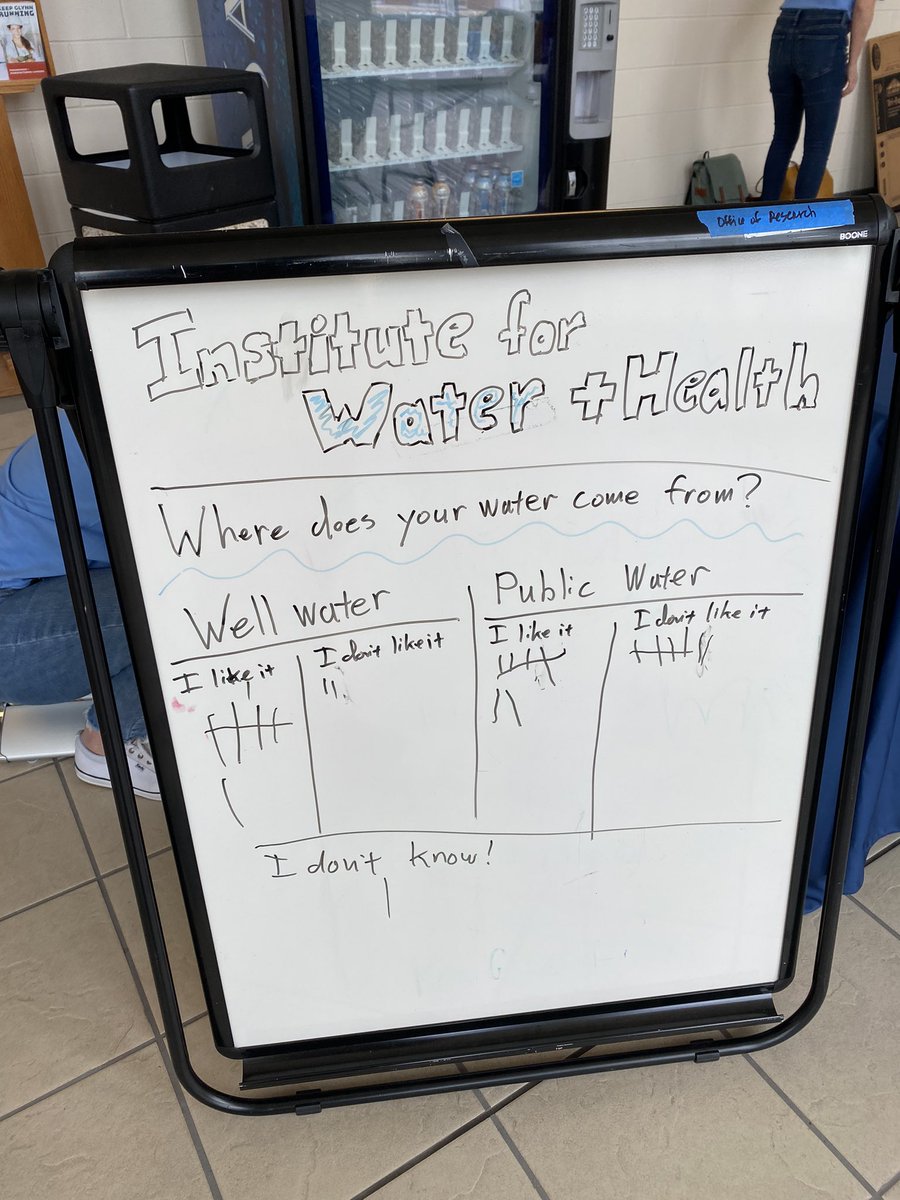 KEEP GLYNN
RUNNING
Office of Research
BOONE
Institute for
Water + Health
Where does your water come from?
Well water
Public Water
I like it
I don't like it
I like it
I don't like it
I don't know!